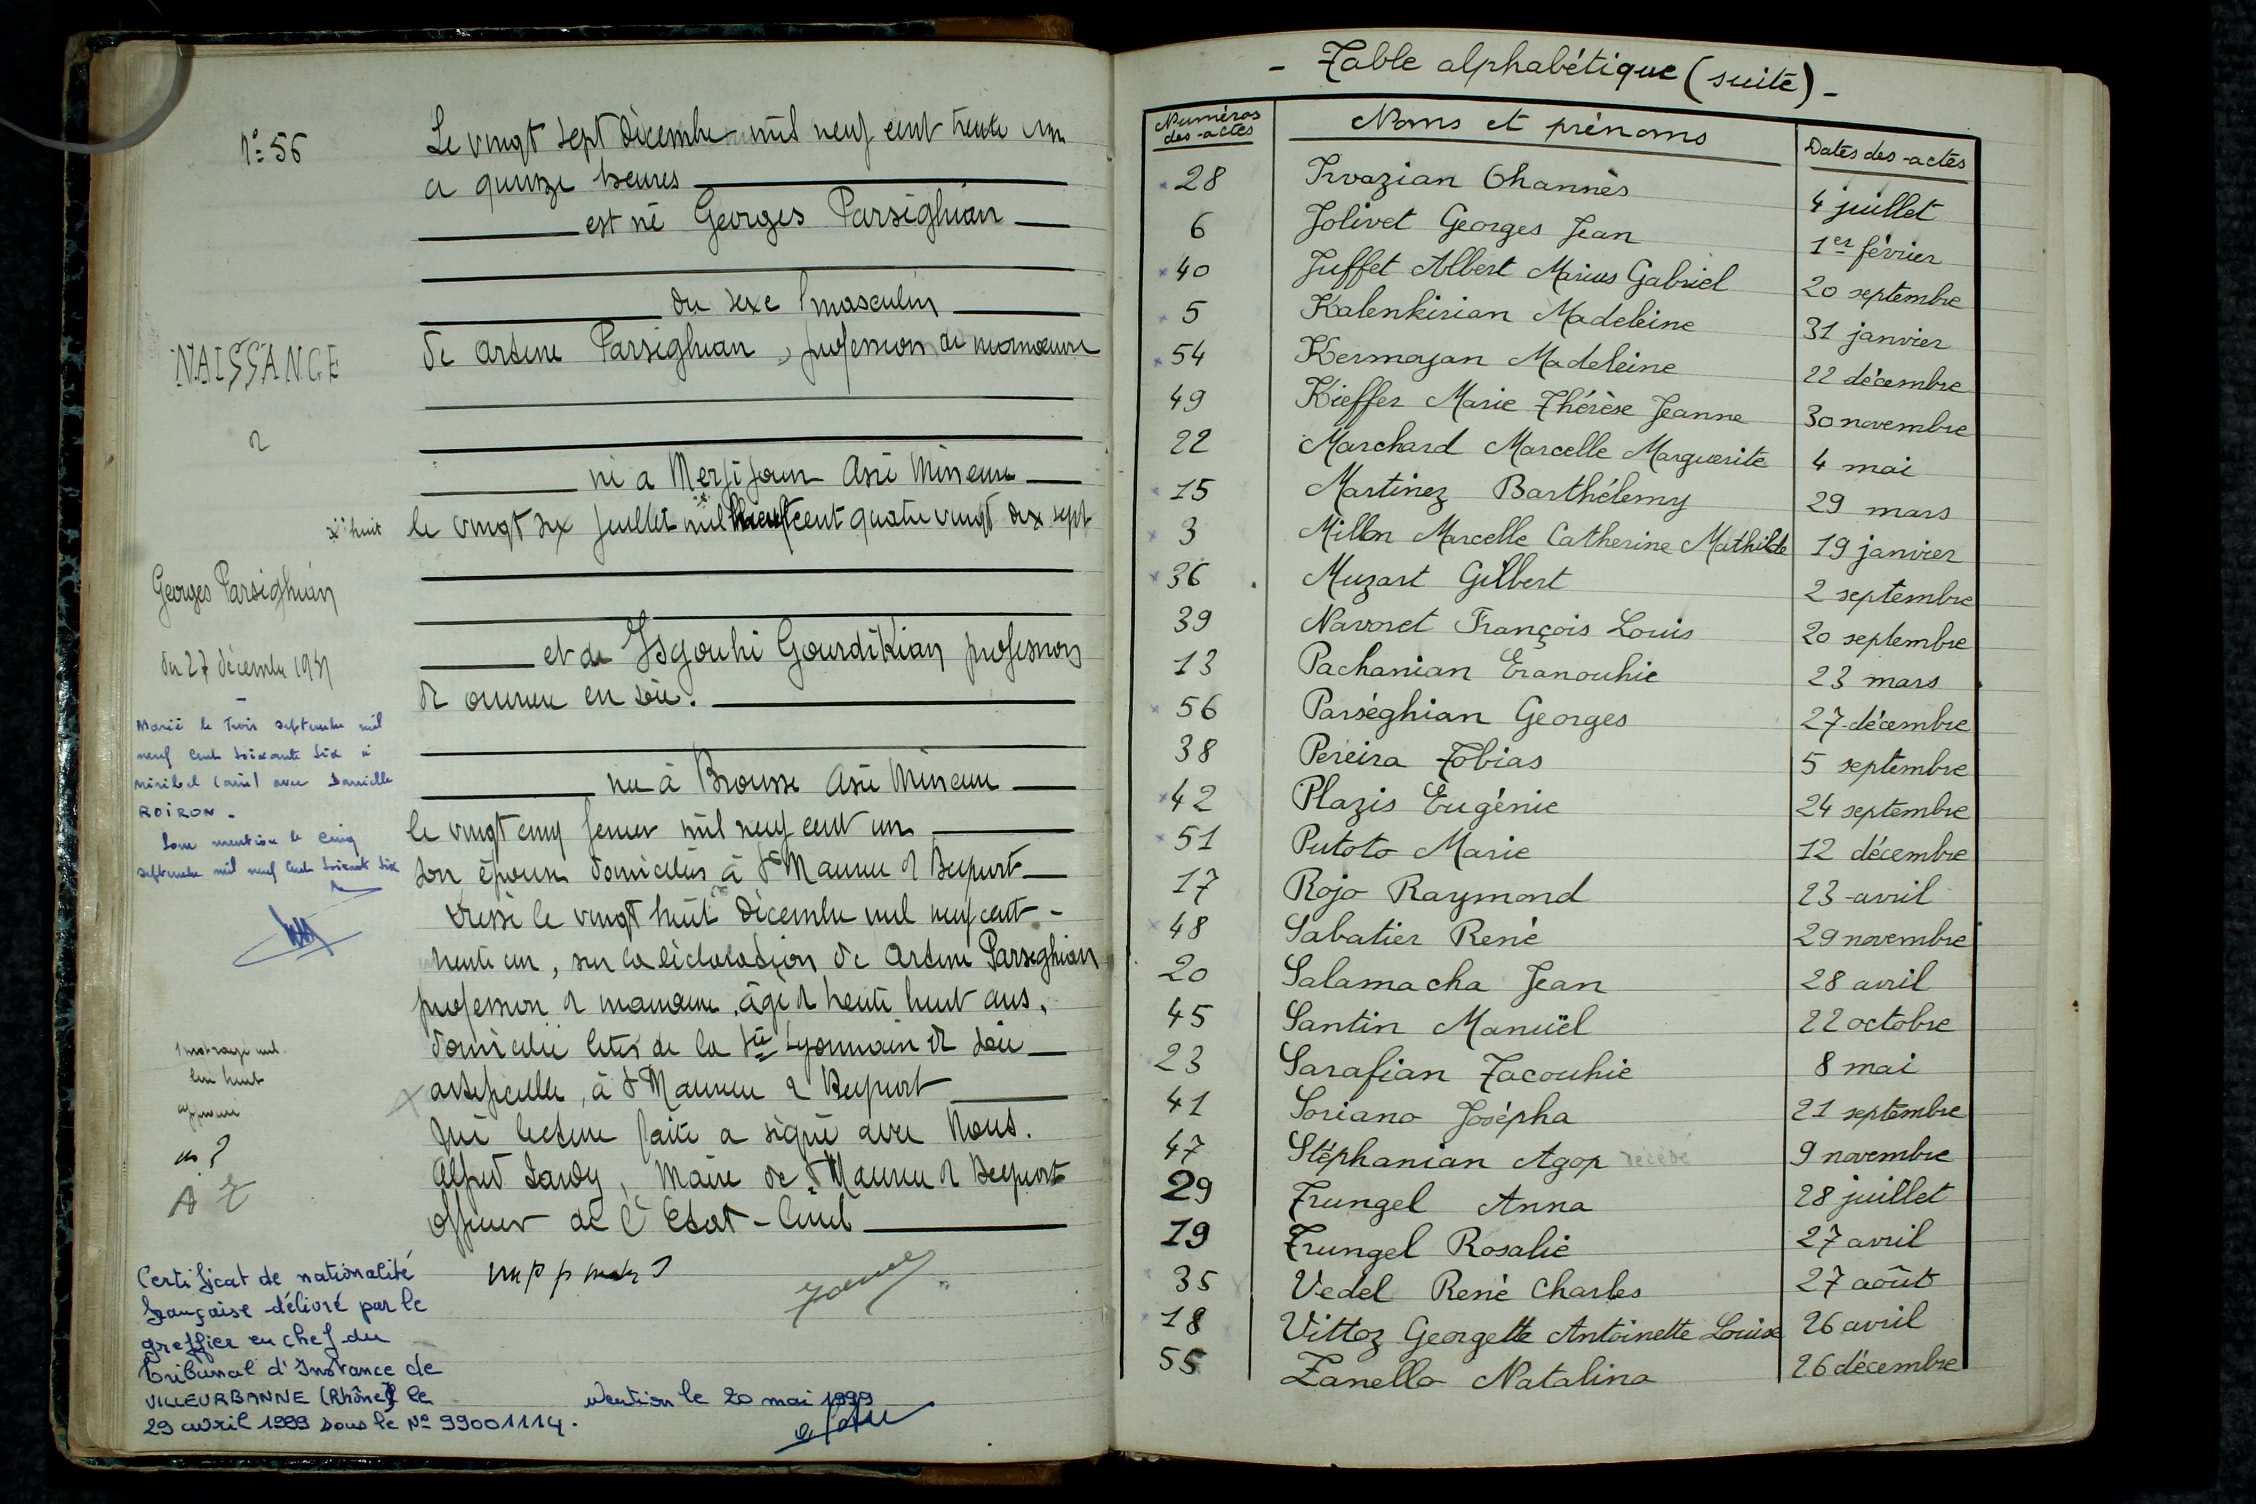 N° 56
NAISSANCE
Georges Parsighian
du 27 décembre 1931
Marié le trois septembre mil
neuf cent soixante six à
miribel (ain) avec Danielle
ROIRON.
mention le cinq
septembre mil neuf cent soixante six
x huit
1 mot rayé nul
lire huit
approuvé
Certificat de nationalité
française délivré par le
greffier en chef du
tribunal d'Instance de
VILLEURBANNE (Rhône) le
29 avril 1999 sous le N° 99001114.
Le vingt sept décembre mil neuf cent trente un
a quinze heures
est né Georges Parsighian
du sexe masculin
de Arsène Parsighian, profession de manoeuvre
né a Asie Mineure
le vingt six juillet mil cent quatre vingt dix sept
et de Isgouhi Gourdikian profession
d' ouvrière en soie.
née à Brousse Asie Mineure
le vingt cinq février mil neuf cent un
son épouse domiciliés à St Maurice de Beynost
Dressé le vingt huit décembre mil neuf cent
trente un, sur la déclaration de Arsène Parseghian
profession de manoeuvre, âgé de trente huit ans,
domicilié cités de la Sté Lyonnaise de Soie
artificielle, à St Maurice de Beynost
Qui lecture faite a signé avec Nous.
Alfred Maire de St Maurice de Beynost
Officier de l'Etat-Civil
Mention le 20 mai 1999
- Table alphabétique (suite) -
Numéros des actes Noms et prénoms Dates des actes
28 Irvazian Ohannès 4 juillet
6 Jolivet Georges Jean 1er février
40 Juffet Albert Marius Gabriel 20 septembre
5 Kalenkirian Madeleine 31 janvier
54 Kermoyan Madeleine 22 décembre
49 Kieffer Marie Thérèse Jeanne 30 novembre
22 Marchard Marcelle Marguerite 4 mai
15 Martinez Barthélemy 29 mars
3 Millon Marcelle Catherine Mathilde 19 janvier
36 Muzart Gilbert 2 septembre
39 Navoret François Louis 20 septembre
13 Pachanian Eranouhie 23 mars
56 Parséghian Georges 27 décembre
38 Pereira Tobias 5 septembre
42 Plazis Eugénie 24 septembre
51 Putoto Marie 12 décembre
17 Rojo Raymond 23 avril
48 Sabatier René 29 novembre
20 Salamacha Jean 28 avril
45 Santin Manuël 22 octobre
23 Sarafian Tacouhie 8 mai
41 Soriano Josépha 21 septembre
47 Stéphanian Agop décédé 9 novembre
29 Trungel Anna 28 juillet
19 Trungel Rosalie 27 avril
35 Vedel René Charles 27 août
18 Vittoz Georgette Antoinette Louise 26 avril
55 Zanello Natalina 26 décembre